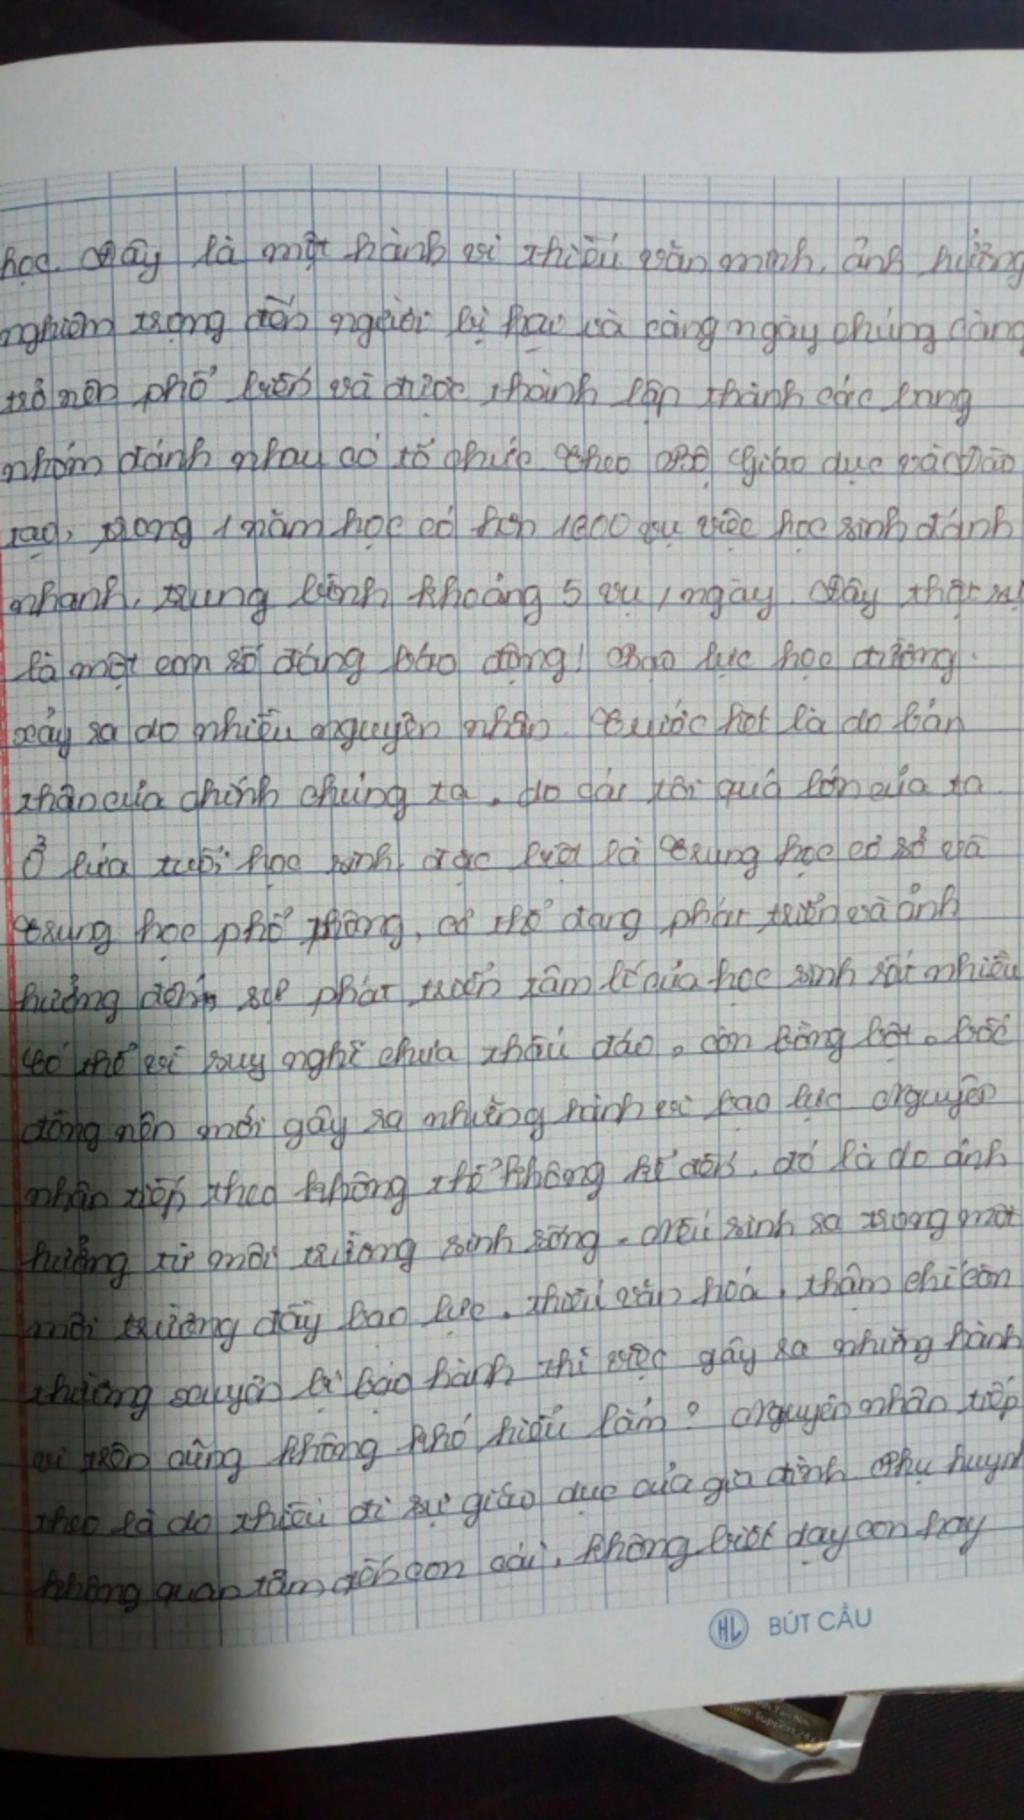 học. Đây là một hành vi thiếu văn minh, ảnh hưởng
nghiêm trọng đến người bị hại và càng ngày chúng càng
trở nên phổ biến và được thành lập thành các bang
nhóm đánh nhau có tổ chức. Theo Bộ Giáo dục và Đào
tạo, trong 1 năm học có hơn 1600 vụ việc học sinh đánh
nhanh, trung bình khoảng 5 vụ/ngày. Đây thật sự
là một con số đáng báo động! Bạo lực học đường
xảy ra do nhiều nguyên nhân. Trước hết là do bản
thân của chính chúng ta, do cái tôi quá lớn của ta.
Ở lứa tuổi học sinh, đặc biệt là Trung học cơ sở và
Trung học phổ thông, cơ thể đang phát triển và ảnh
hưởng đến sự phát triển tâm lí của học sinh rất nhiều
Có thể vì suy nghĩ chưa thấu đáo, còn bồng bột, bốc
đồng nên mới gây ra những hành vi bạo lực. Nguyên
nhân tiếp theo không thể không kể đến, đó là do ảnh
hưởng từ môi trường sinh sống. Nếu sinh ra trong một
môi trường đầy bạo lực, thiếu văn hoá, thậm chí còn
thường xuyên bị bạo hành thì việc gây ra những hành
vi trên cũng không khó hiểu lắm? Nguyên nhân tiếp
theo là do thiếu đi sự giáo dục của gia đình. Phụ huynh
không quan tâm đến con cái, không biết dạy con hay
HL BÚT CẦU